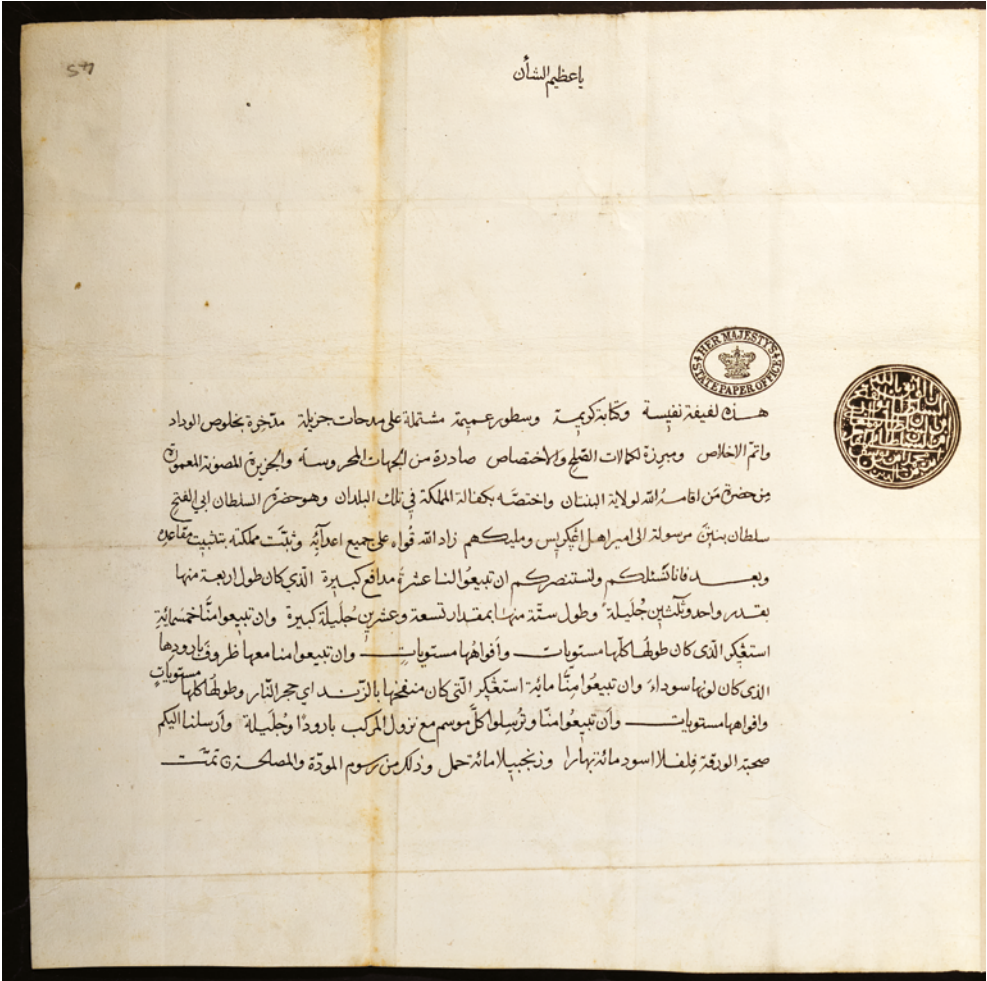 يا عظيم الشأن
5
HER MAJESTY'S
STATE PAPER OFFICE
هذه لفيفة نفيسة وكتابة كريمة وسطور عميمة مشتملة على مدحات جزيلة مدّخرة بخلوص الوداد
واتمّ الاخلاص ومبرزة لكمالات الصّلح والاختصاص صادرة من الجهات المحروسة والجزيرة المصونة المعمورة
من حضرة مَن اقامه اللّه لولاية البنتان واختصّه بكفالة المملكة في تلك البلدان وهو حضرة السلطان ابي الفتح
سلطان بنتن مرسولة الى امير اهل اڠكريس ومليكهم زاد اللّه قُواه على جميع اعدآئِه وثبّت مملكته بتثبيت مقاعده
وبعد فانا نسئلكم ولنستنصركم ان تبيعُوا لنا عشرة مدافع كبيرة الّذي كان طول اربعة منها
بقدر واحد وثلثين جُلَيلة وطول ستّة منها بمقدار تسعة وعشرين جُلَيلة كبيرة وان تبيعوا منّا خمسمائة
استڠكر الّذي كان طولها كلّها مستويات وأفواهُها مستويات وان تبيعوا منا معها ظروف بارودها
الذى كان لونها سوداءَ وان تبيعُوا مِنَّا مائة استڠكر الّتى كان منفخها بالزّند اي حجر النّار وطولها كلّها مستويات
وافواهها مستويات وأن تبيعُوا منّا وتُرسِلوا كلّ موسم مع نزول المركب بارودًا وجُلَيلة وأرسلنا اليكم
صحبة الورقة فلفلا اسود مائة بهارا وزنجبيلا مائة حمل وذلك من رسوم المودّة والمصالحة تمّت